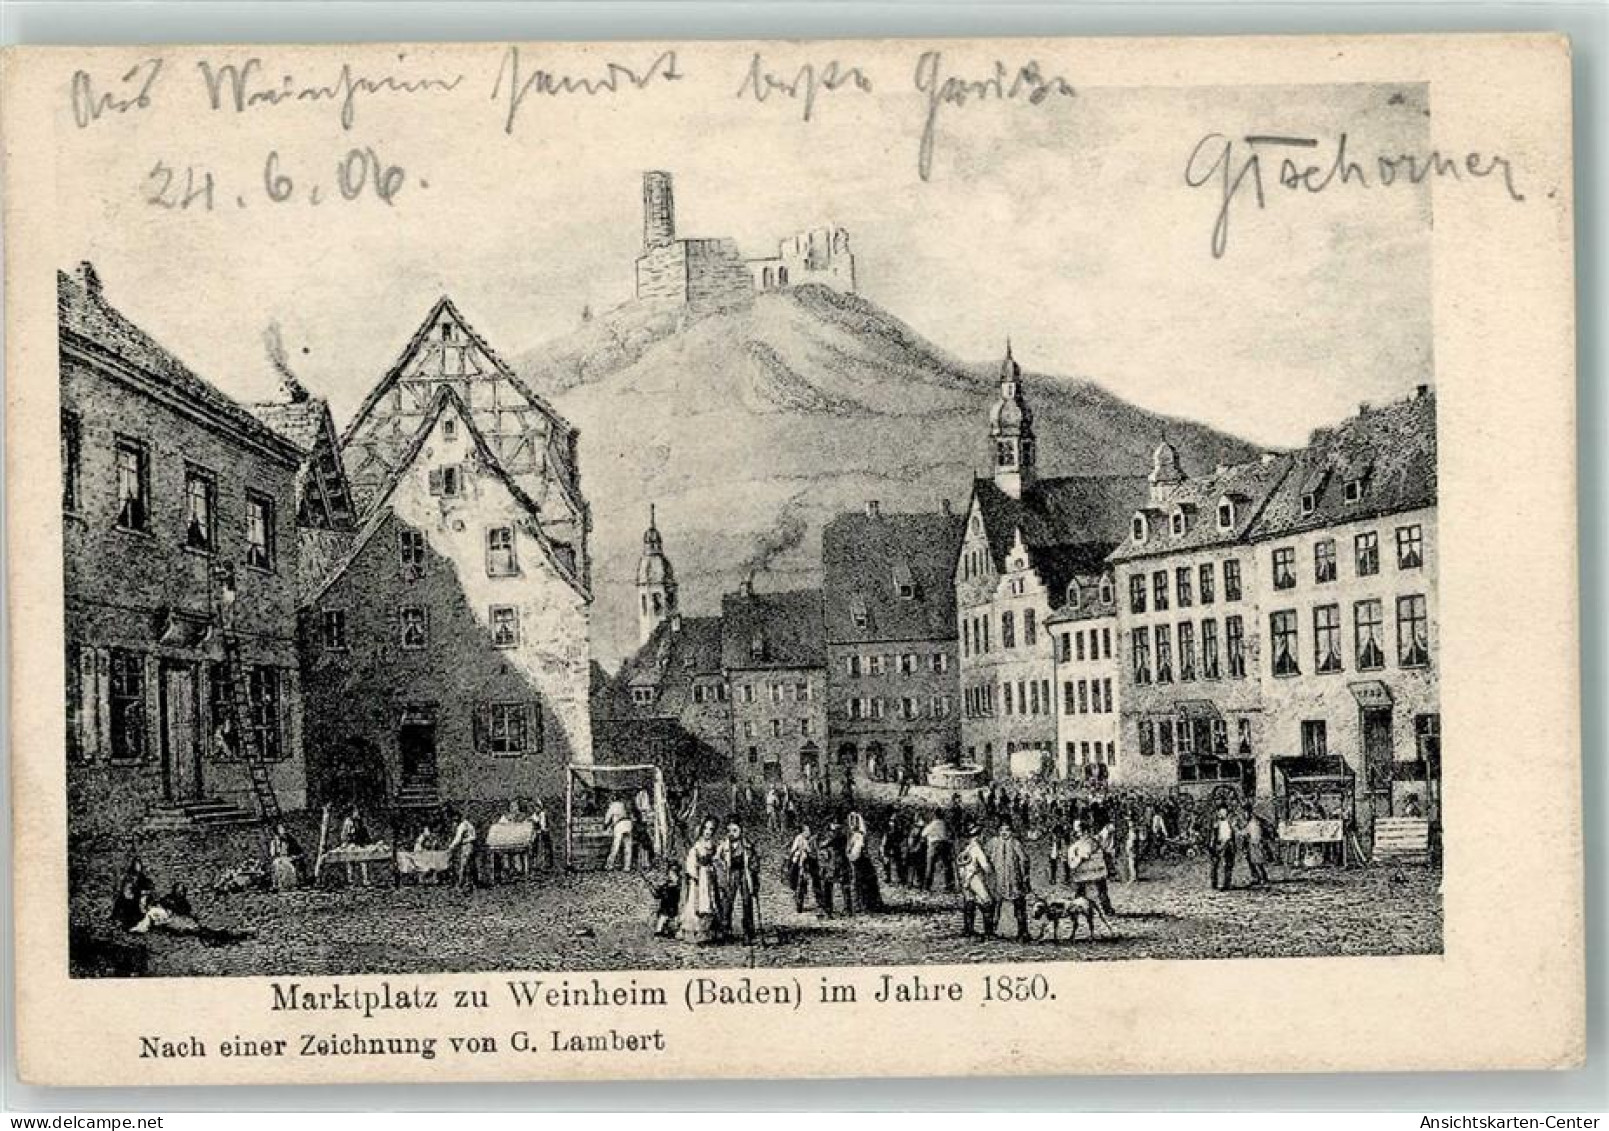 Aus Weinheim sendet beste Grüße
24.6.06.
GTschorner.
Marktplatz zu Weinheim (Baden) im Jahre 1850.
Nach einer Zeichnung von G. Lambert
Ansichtskarten-Center